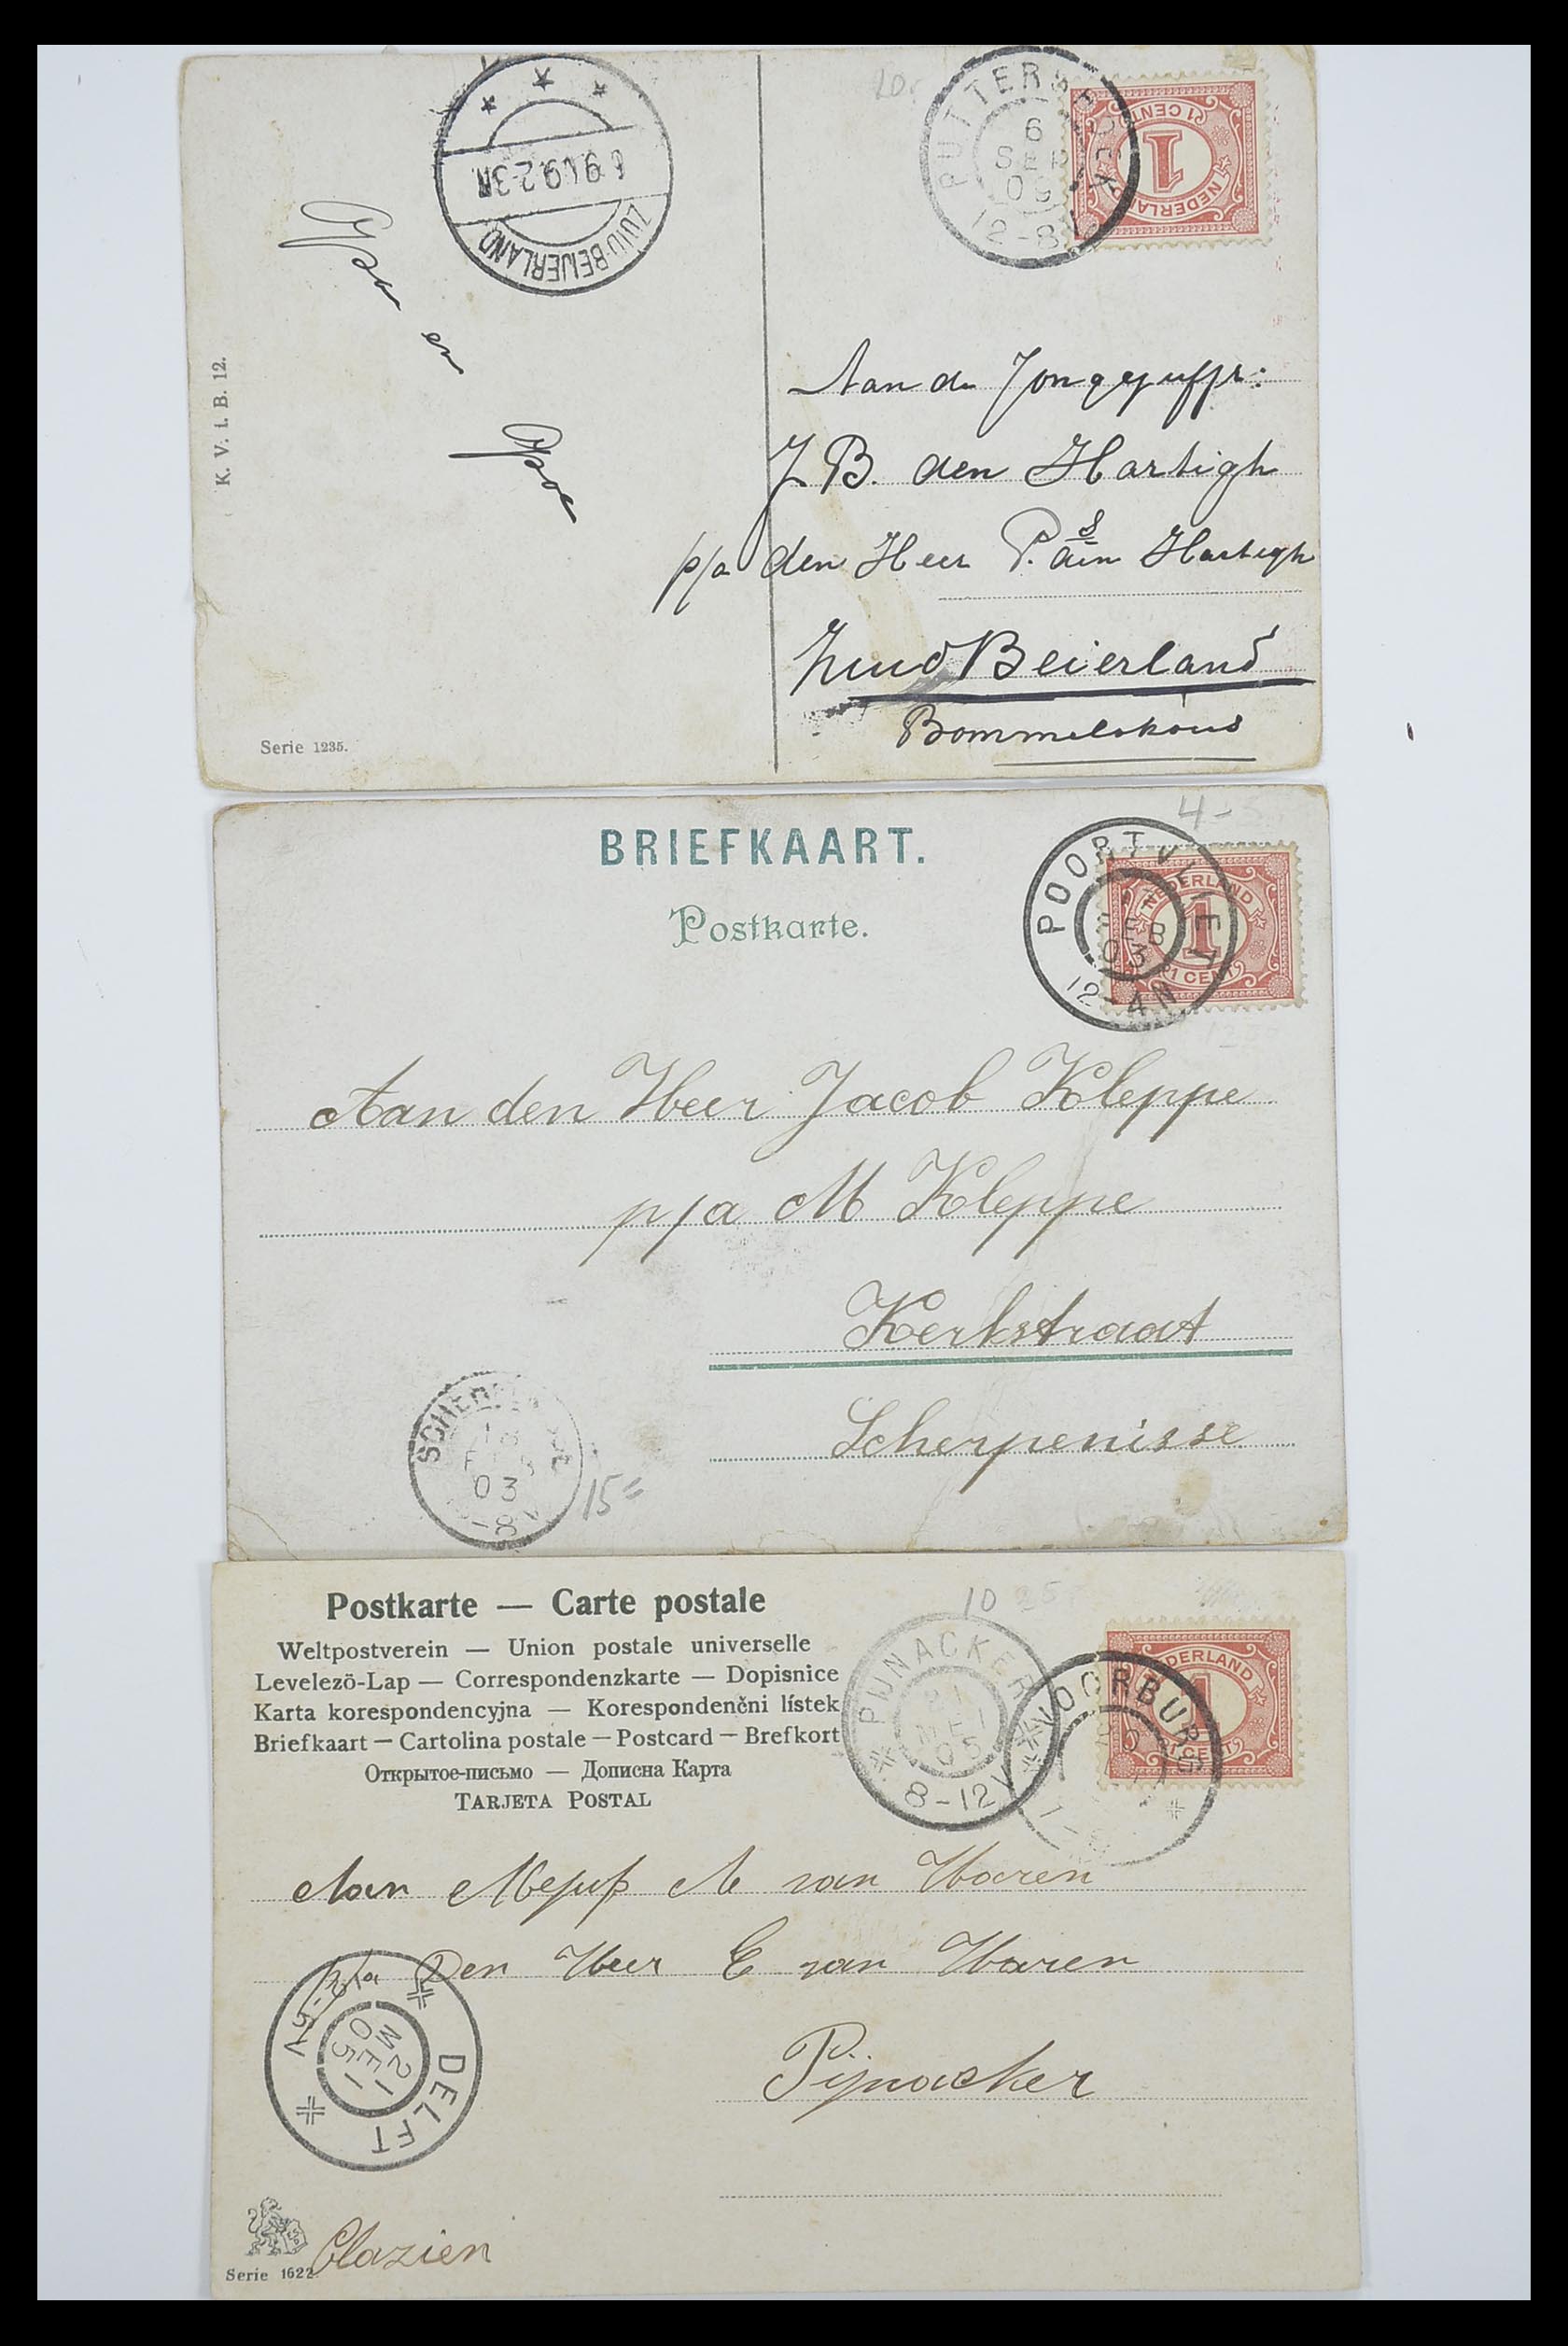 PUTTERSHOEK
6
SEP
09
12-8
1 CENT
1
NEDERLAND
6.9.09.2-3N
ZUID-BEIJERLAND
20
Opa
en
Opoe
K. V. i. B. 12.
Serie 1235.
Aan de Jongejuffr:
J. B. den Hartigh
p/a den Heer P. den Hartigh
Zuid Beierland
Bommelskous
4-
BRIEFKAART.
Postkarte.
POORTVLIET
FEB
03
12-4N
NEDERLAND
1
1 CENT
Aan den Heer Jacob Kleppe
p/a M Kleppe
Kerkstraat
Scherpenisse
FEB
03
-8V
15=
Postkarte — Carte postale
Weltpostverein — Union postale universelle
Levelezö-Lap — Correspondenzkarte — Dopisnice
Karta korespondencyjna — Korespondenčni lístek
Briefkaart — Cartolina postale — Postcard — Brefkort
Открытое-письмо — Дописна Карта
TARJETA POSTAL
10 25
PIJNACKER
21
MEI
05
8-12V
VOORBURG
NEDERLAND
1
1 CENT
Aan Mejuf A van Haren
p/a Den Heer C van Haren
Pijnacker
DELFT
21
MEI
05
3-5N
Clazien
Serie 1622.